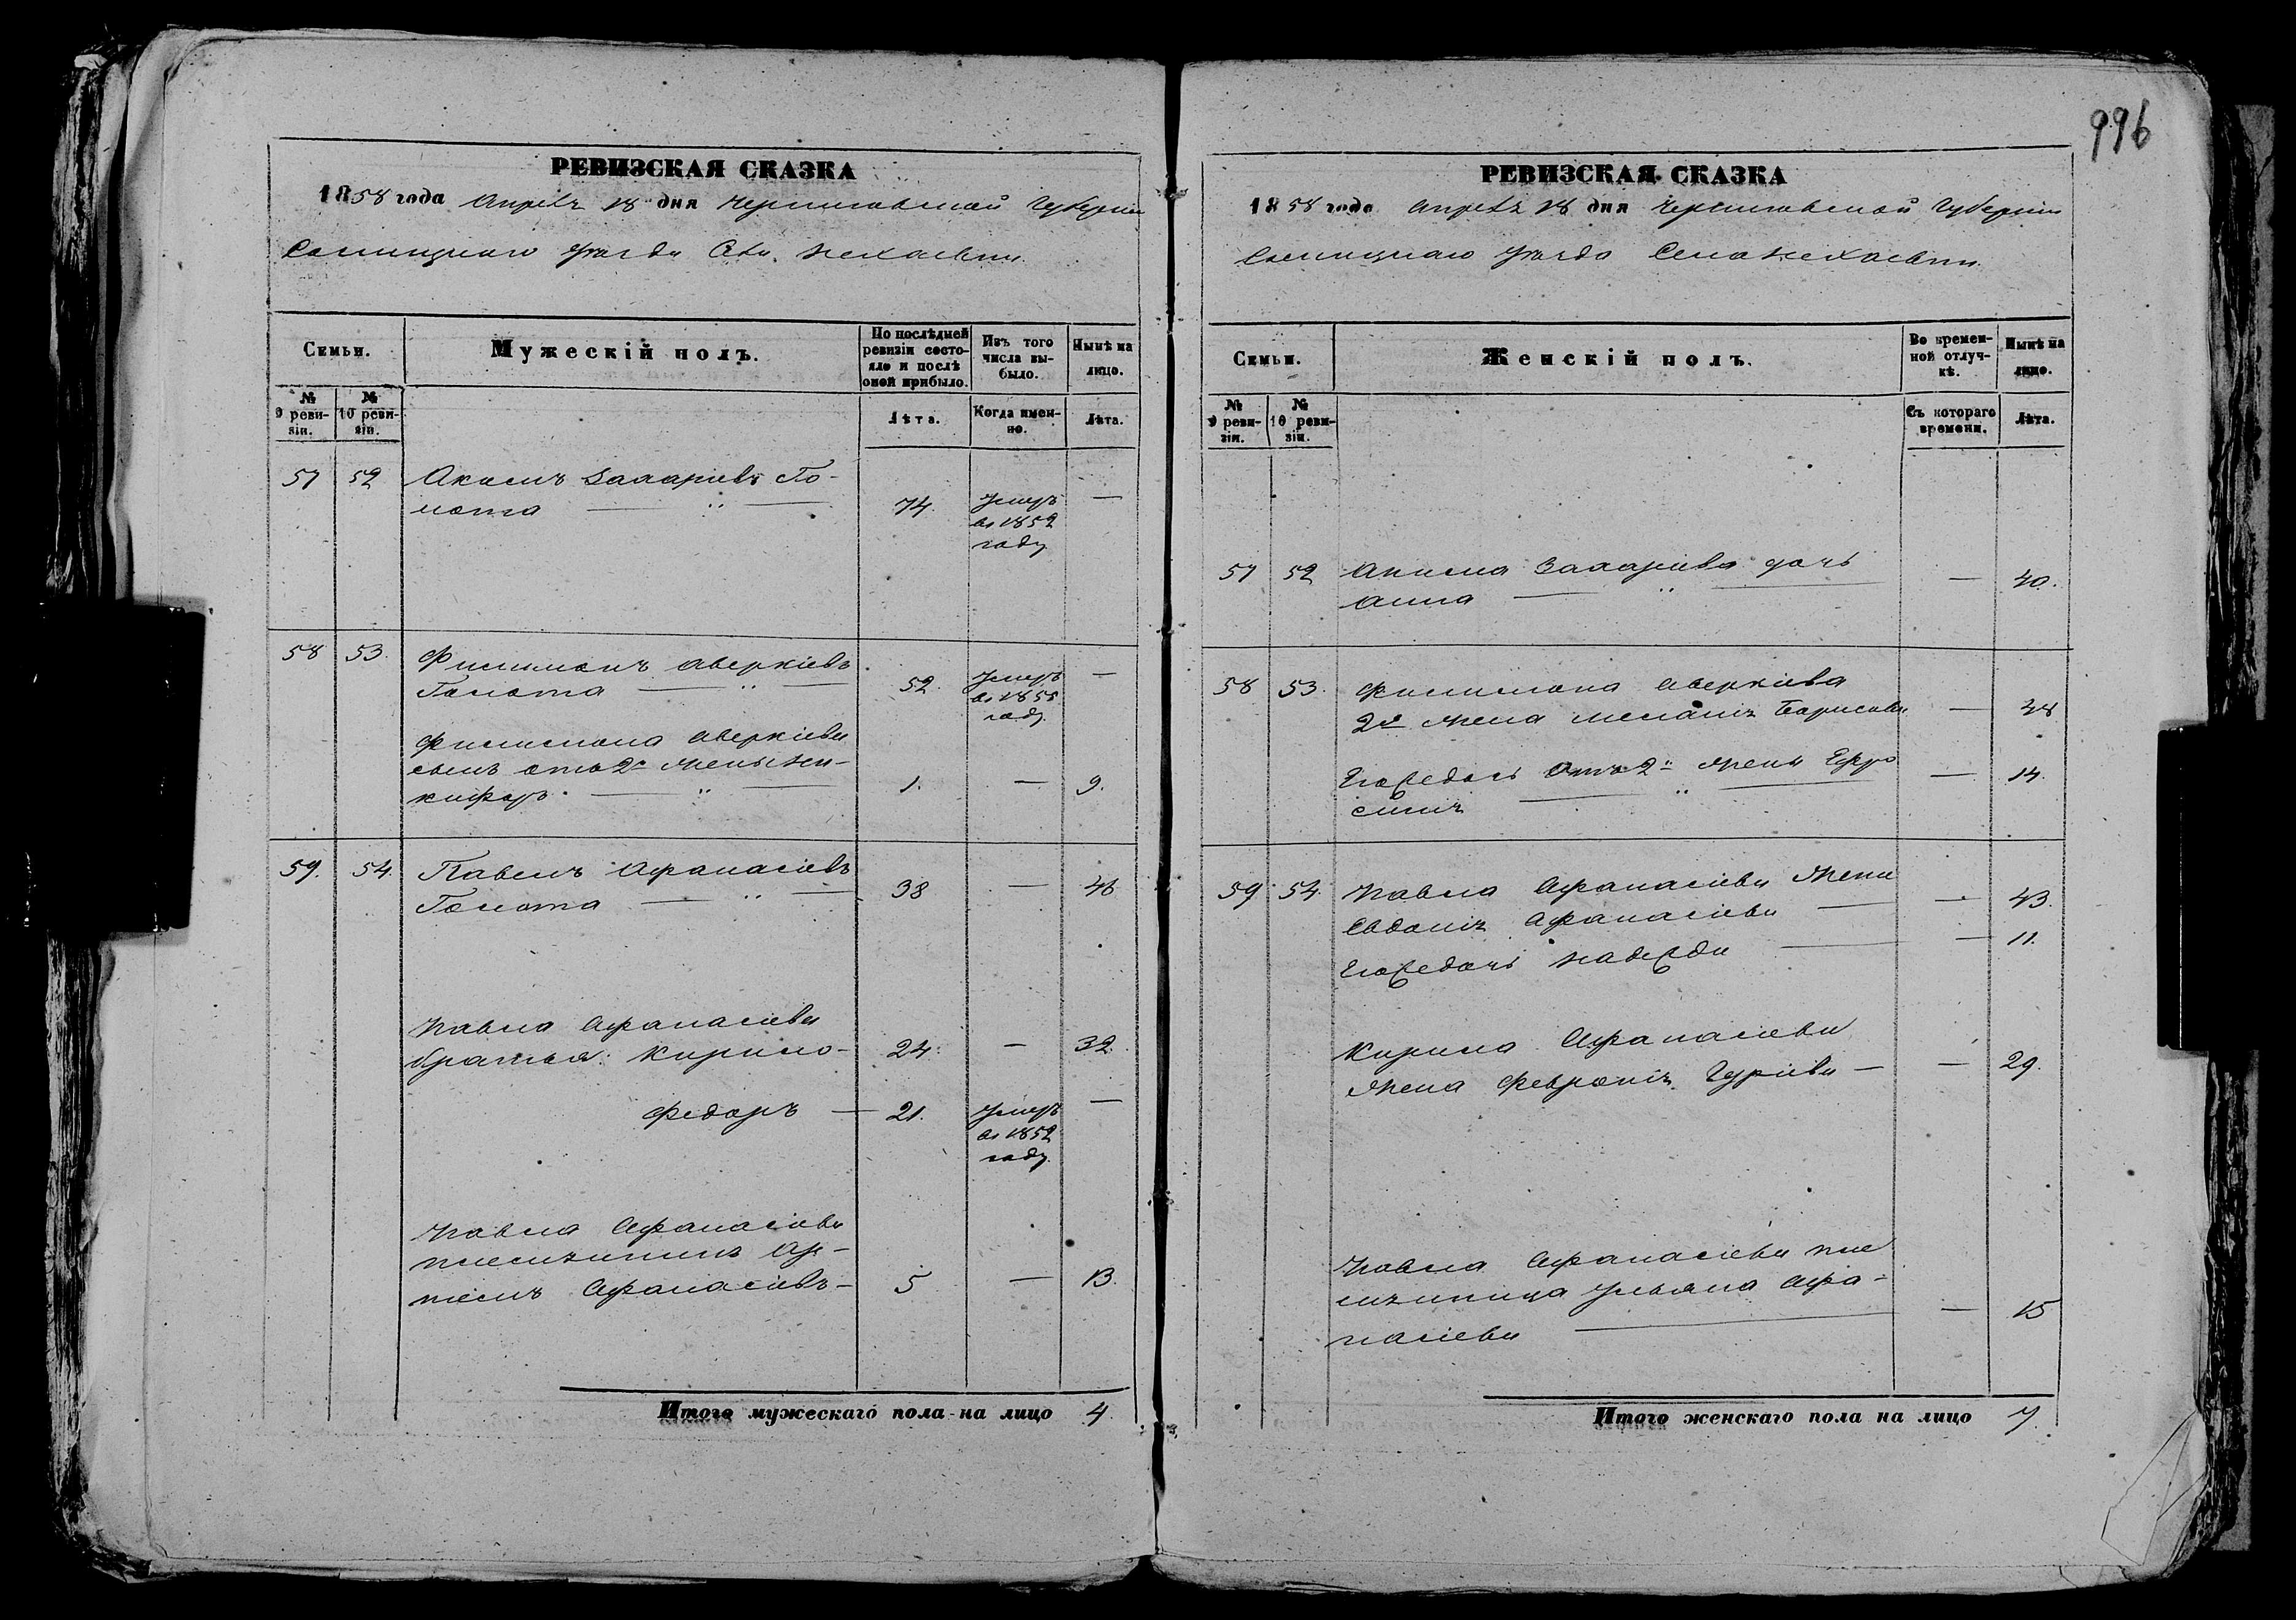 996
РЕВИЗСКАЯ СКАЗКА
1858 года Апреля 18 дня Черниговской Губернии
Сосницкаго уезда Села Нехаевки
Семьи.
Мужескій полъ.
По послѣдней ревизіи состояло и послѣ оной прибыло.
Изъ того числа выбыло.
Нынѣ на лицо.
№ 9 ревизіи.
№ 10 ревизіи.
Лѣта.
Когда именно.
Лѣта.
57 52 Акимъ Захаріевъ Го-
лота 74. Умеръ —
въ 1852
году
58 53. Филимонъ Аверкіевъ
Голота 52. Умеръ —
въ 1855
году.
Филимона Аверкіева
сынъ отъ 2й жены Ни-
кифоръ 1. — 9.
59. 54. Павелъ Афанасіевъ
Голота 38 — 46
Павла Афанасіева
братья: Кирило- 24. — 32.
Федоръ — 21. Умеръ —
въ 1852
году.
Павла Афанасіева
племянникъ Ар-
темъ Афанасіевъ- 5 — 13.
Итого мужескаго пола на лицо 4.
РЕВИЗСКАЯ СКАЗКА
1858 года Апреля 18 дня Черниговской Губерніи
Сосницкаго уезда Села Нехаевки
Семьи.
Женскій полъ.
Во временной отлучкѣ.
Нынѣ на лицо.
№ 9 ревизіи.
№ 10 ревизіи.
Съ котораго времени.
Лѣта.
57 52 Акима Захаріева дочь
Анна — 40.
58 53. Филимона Аверкіева
2я жена Меланія Борисова — 48
Егоже дочь отъ 2й жены Ефро — 14.
синія
59. 54. Павла Афанасіева жена
Евдокія Афанасіева — — 43.
Егоже дочь Надежда — — 11.
Кирила Афанасіева
жена Февронія Гуріева — — 29.
Павла Афанасіева пле
мянница Ульяна Афа-
насіева — 15
Итого женскаго пола на лицо 7.